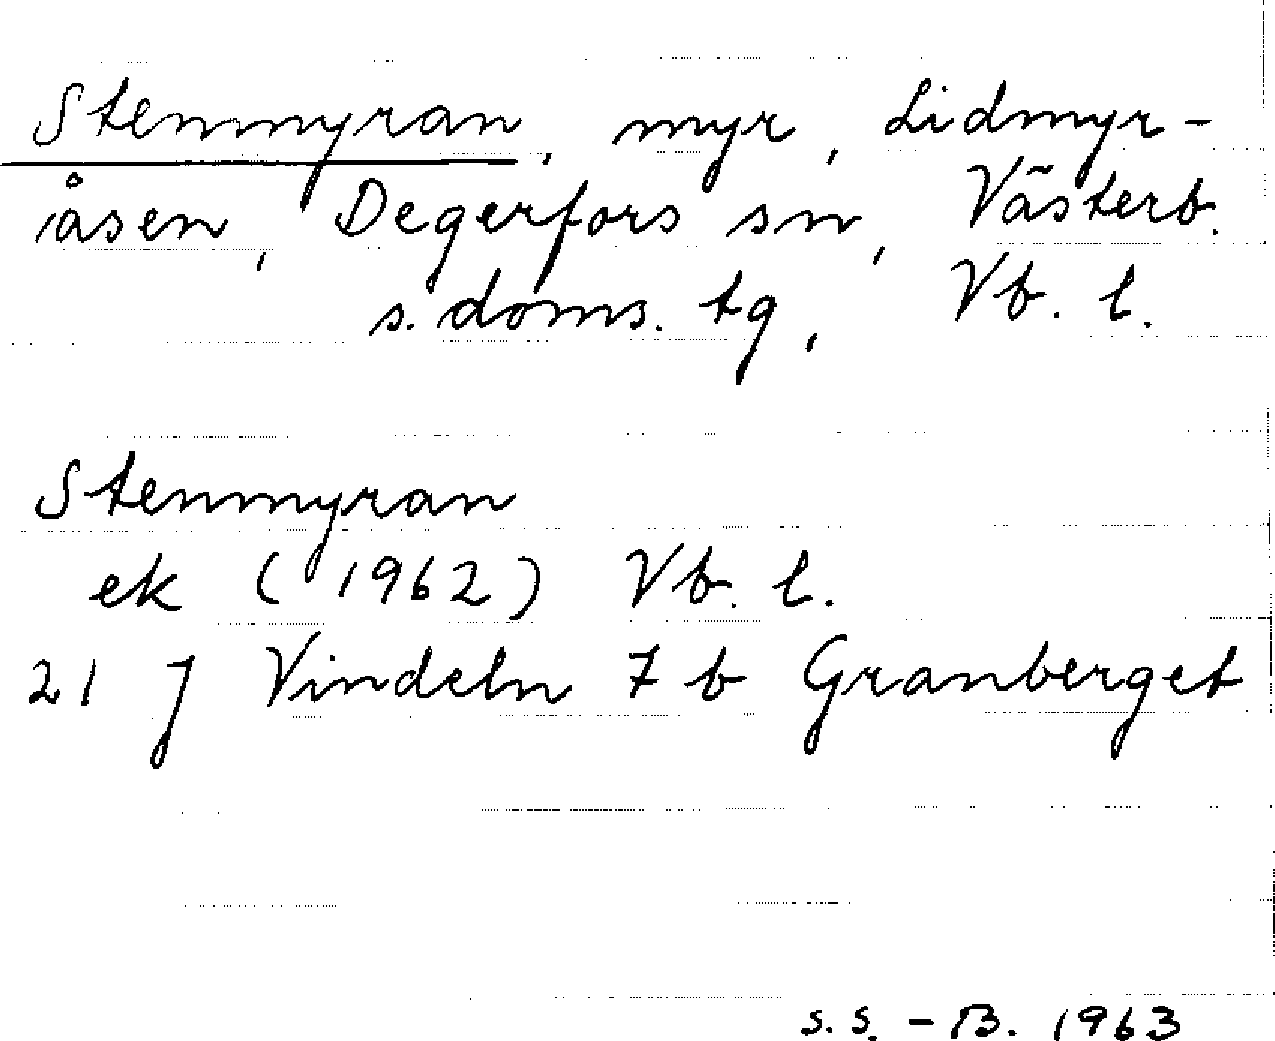 Stenmyran, myr, Lidmyr-
åsen, Degerfors sn, Västerb.
s. doms. tg, Vb. l.
Stenmyran
ek (1962) Vb. l.
21 J Vindeln 7 b Granberget
S.S. - B. 1963